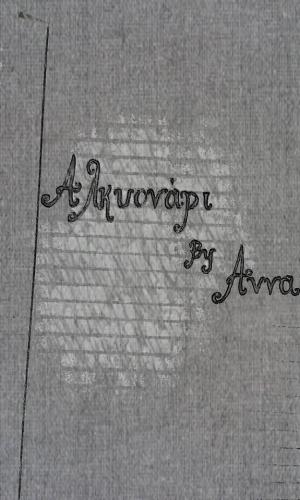 Αλκυονάρι
By
Άννα